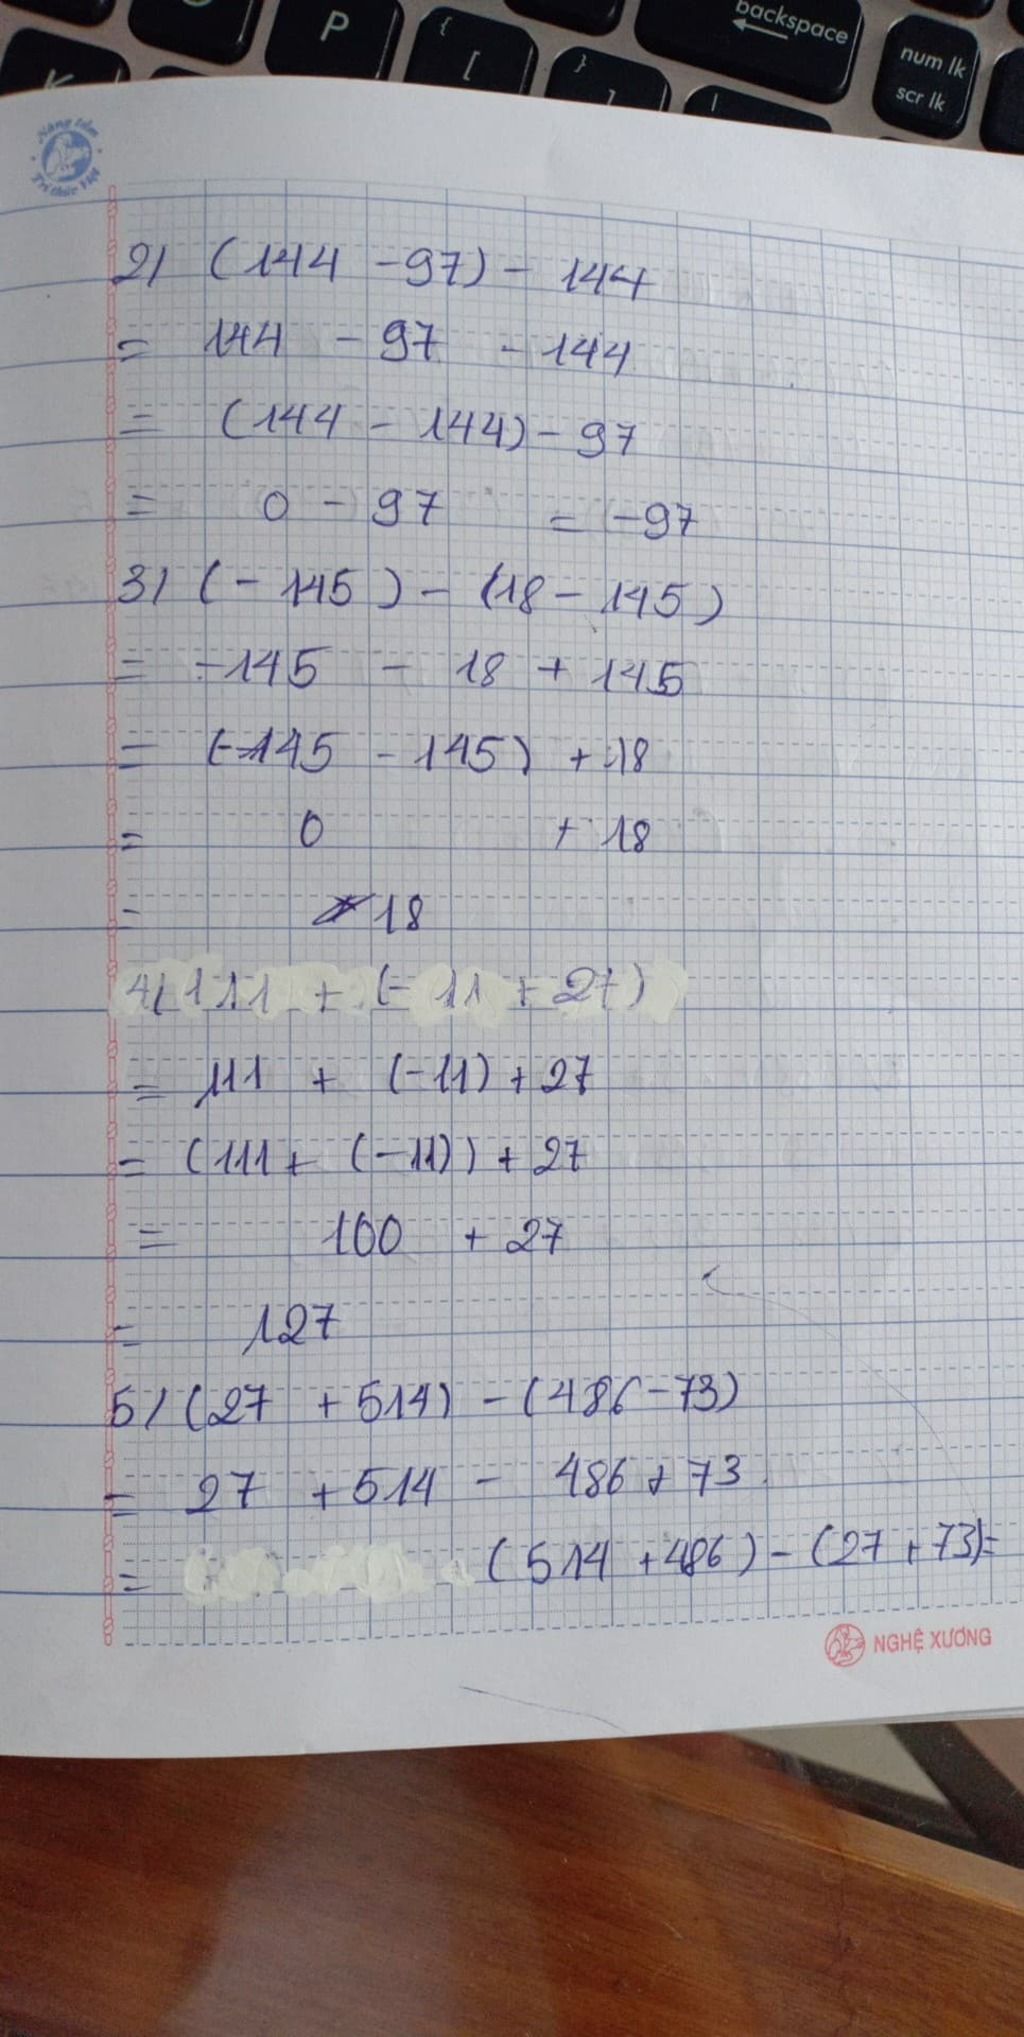 P
{
[
}
]
backspace
num lk
scr lk
K
Nâng tầm
Trí thức Việt
2/ (144 - 97) - 144
= 144 - 97 - 144
= (144 - 144) - 97
= 0 - 97 = -97
3/ (- 145) - (18 - 145)
= -145 - 18 + 145
= (-145 - 145) + 18
= 0 + 18
= 18
4/ 111 + (- 11 + 27)
= 111 + (-11) + 27
= (111 + (-11)) + 27
= 100 + 27
= 127
5/ (27 + 514) - (486 - 73)
= 27 + 514 - 486 + 73
= (514 + 486) - (27 + 73) =
NGHỆ XƯƠNG